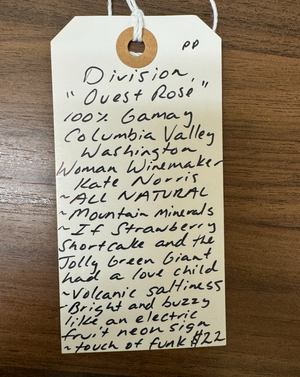 PP
Division,
"Ouest Rosé"
100% Gamay
Columbia Valley
Washington
Woman Winemaker
Kate Norris
~ALL NATURAL
~Mountain Minerals
~If Strawberry
Shortcake and the
Jolly Green Giant
had a love child
~Volcanic saltiness
~Bright and buzzy
like an electric
fruit neon sign
~touch of funk $22